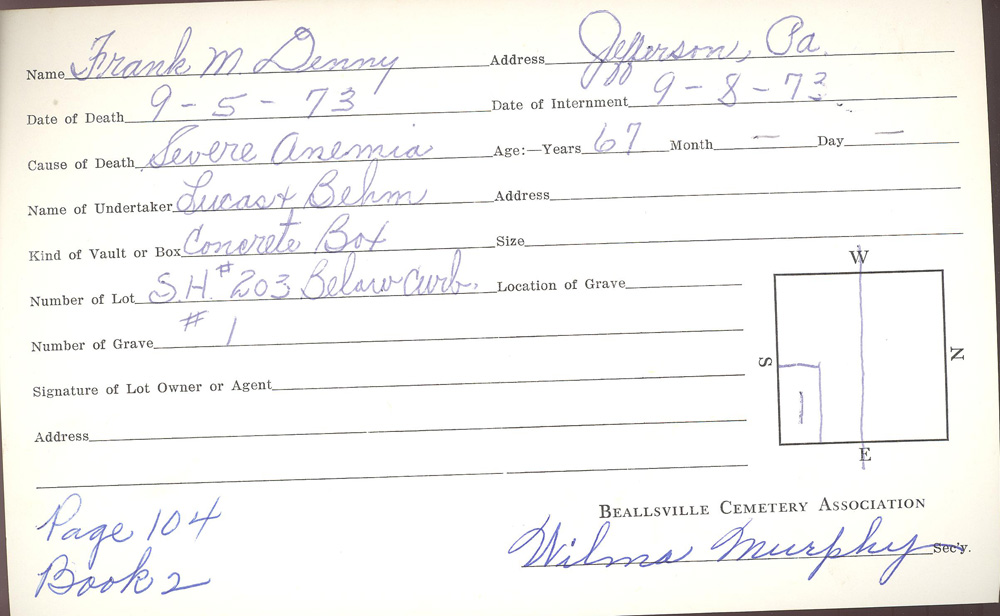 Name Frank M. Denny Address Jefferson, Pa.
Date of Death 9-5-73 Date of Internment 9-8-73
Cause of Death Severe Anemia Age:—Years 67 Month — Day —
Name of Undertaker Lucas & Behm Address
Kind of Vault or Box Concrete Box Size
Number of Lot S.H. #203 Below Curb. Location of Grave
Number of Grave #1
Signature of Lot Owner or Agent
Address
W
S
N
1
E
Page 104
Book 2
Beallsville Cemetery Association
Wilma Murphy Sec'y.